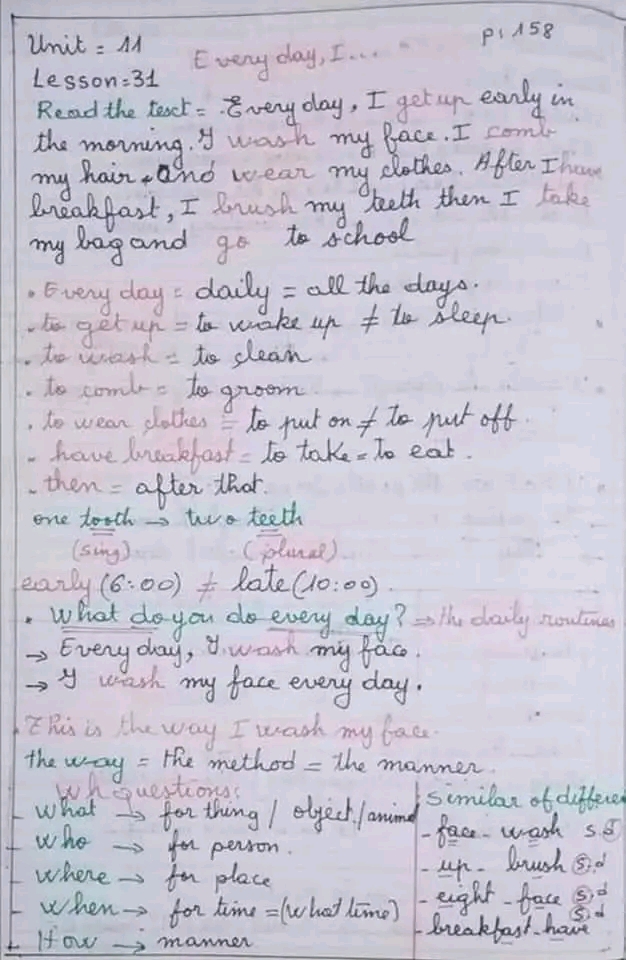 Unit = 11
p: 158
Every day, I...
Lesson=31
Read the text = Every day, I get up early in
the morning. I wash my face. I comb
my hair and wear my clothes. After I have
breakfast, I brush my teeth then I take
my bag and go to school
. Every day = daily = all the days.
. to get up = to wake up ≠ to sleep.
. to wash = to clean
. to comb = to groom
. to wear clothes = to put on ≠ to put off.
- have breakfast = to take = To eat.
. then = after that.
one tooth → two teeth
(sing) (plural)
early (6:00) ≠ late (10:00)
. What do you do every day? ⇒ the daily routines
→ Every day, I wash my face.
→ I wash my face every day.
. This is the way I wash my face.
the way = the method = the manner.
Wh questions:
- What → for thing / object / animal
- Who → for person.
- Where → for place
- When → for time = (what time)
- How → manner
Similar of differen
- face - wash s d
- up - brush s d
- eight - face s d
- breakfast - have s d